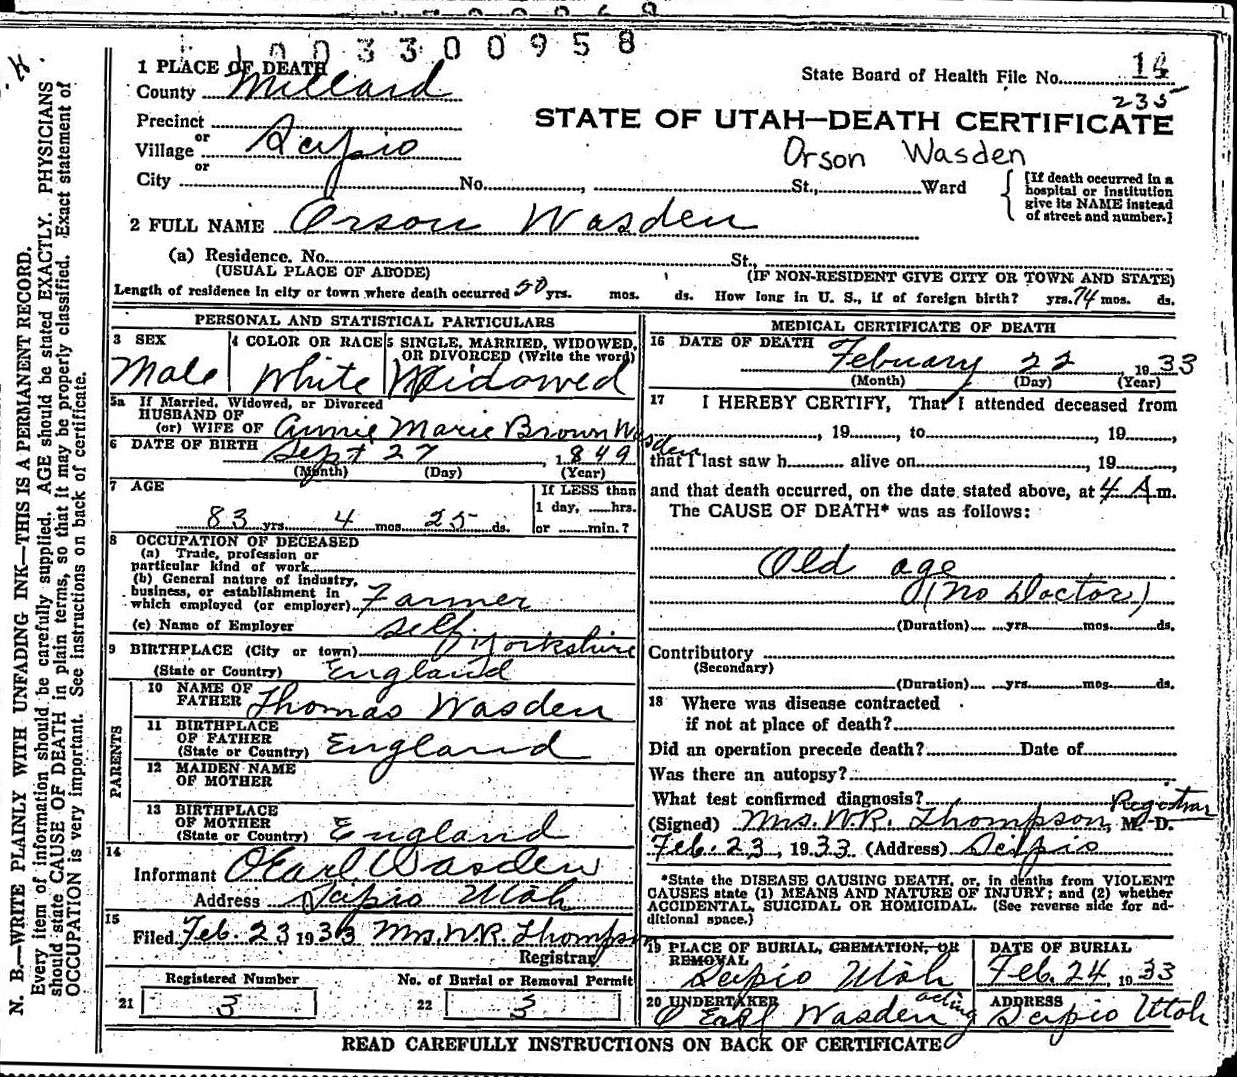 1003300958
1 PLACE OF DEATH
County Millard
State Board of Health File No. 14
235
Precinct
or
Village Scipio
or
STATE OF UTAH—DEATH CERTIFICATE
Orson Wasden
City No. , St., Ward
[If death occurred in a
hospital or institution
give its NAME instead
of street and number.]
2 FULL NAME Orson Wasden
(a) Residence. No. St.,
(USUAL PLACE OF ABODE) (IF NON-RESIDENT GIVE CITY OR TOWN AND STATE)
Length of residence in city or town where death occurred 50 yrs. mos. ds. How long in U. S., if of foreign birth? yrs. 74 mos. ds.
PERSONAL AND STATISTICAL PARTICULARS
3 SEX
Male
4 COLOR OR RACE
White
5 SINGLE, MARRIED, WIDOWED,
OR DIVORCED (Write the word)
Widowed
5a If Married, Widowed, or Divorced
HUSBAND OF
(or) WIFE OF Annie Marie Brown Wasden
6 DATE OF BIRTH Sept 27, 1849
(Month) (Day) (Year)
7 AGE
83 yrs. 4 mos. 25 ds.
If LESS than
1 day, hrs.
or min.?
8 OCCUPATION OF DECEASED
(a) Trade, profession or
particular kind of work
(b) General nature of industry,
business, or establishment in
which employed (or employer) Farmer
(c) Name of Employer Self
9 BIRTHPLACE (City or town) Yorkshire
(State or Country) England
PARENTS
10 NAME OF
FATHER Thomas Wasden
11 BIRTHPLACE
OF FATHER
(State or Country) England
12 MAIDEN NAME
OF MOTHER
13 BIRTHPLACE
OF MOTHER
(State or Country) England
14
Informant O Earl Wasden
Address Scipio Utah
15
Filed Feb. 23 1933 Mrs. W.R. Thompson
Registrar
Registered Number
21 3
No. of Burial or Removal Permit
22 3
MEDICAL CERTIFICATE OF DEATH
16 DATE OF DEATH
February 22, 1933
(Month) (Day) (Year)
17 I HEREBY CERTIFY, That I attended deceased from
, 19 , to , 19 ,
that I last saw h alive on , 19 ,
and that death occurred, on the date stated above, at 4 A.m.
The CAUSE OF DEATH* was as follows:
Old age
(No Doctor)
(Duration) yrs. mos. ds.
Contributory
(Secondary)
(Duration) yrs. mos. ds.
18 Where was disease contracted
if not at place of death?
Did an operation precede death? Date of
Was there an autopsy?
What test confirmed diagnosis?
Registrar
(Signed) Mrs. W.R. Thompson, M. D.
Feb. 23, 1933 (Address) Scipio
*State the DISEASE CAUSING DEATH, or, in deaths from VIOLENT
CAUSES state (1) MEANS AND NATURE OF INJURY; and (2) whether
ACCIDENTAL, SUICIDAL OR HOMICIDAL. (See reverse side for ad-
ditional space.)
19 PLACE OF BURIAL, CREMATION, OR
REMOVAL
Scipio Utah
DATE OF BURIAL
Feb. 24, 1933
20 UNDERTAKER
O Earl Wasden acting
ADDRESS
Scipio Utah
READ CAREFULLY INSTRUCTIONS ON BACK OF CERTIFICATE
N. B.—WRITE PLAINLY WITH UNFADING INK—THIS IS A PERMANENT RECORD.
Every item of information should be carefully supplied. AGE should be stated EXACTLY. PHYSICIANS
should state CAUSE OF DEATH in plain terms, so that it may be properly classified. Exact statement of
OCCUPATION is very important. See instructions on back of certificate.